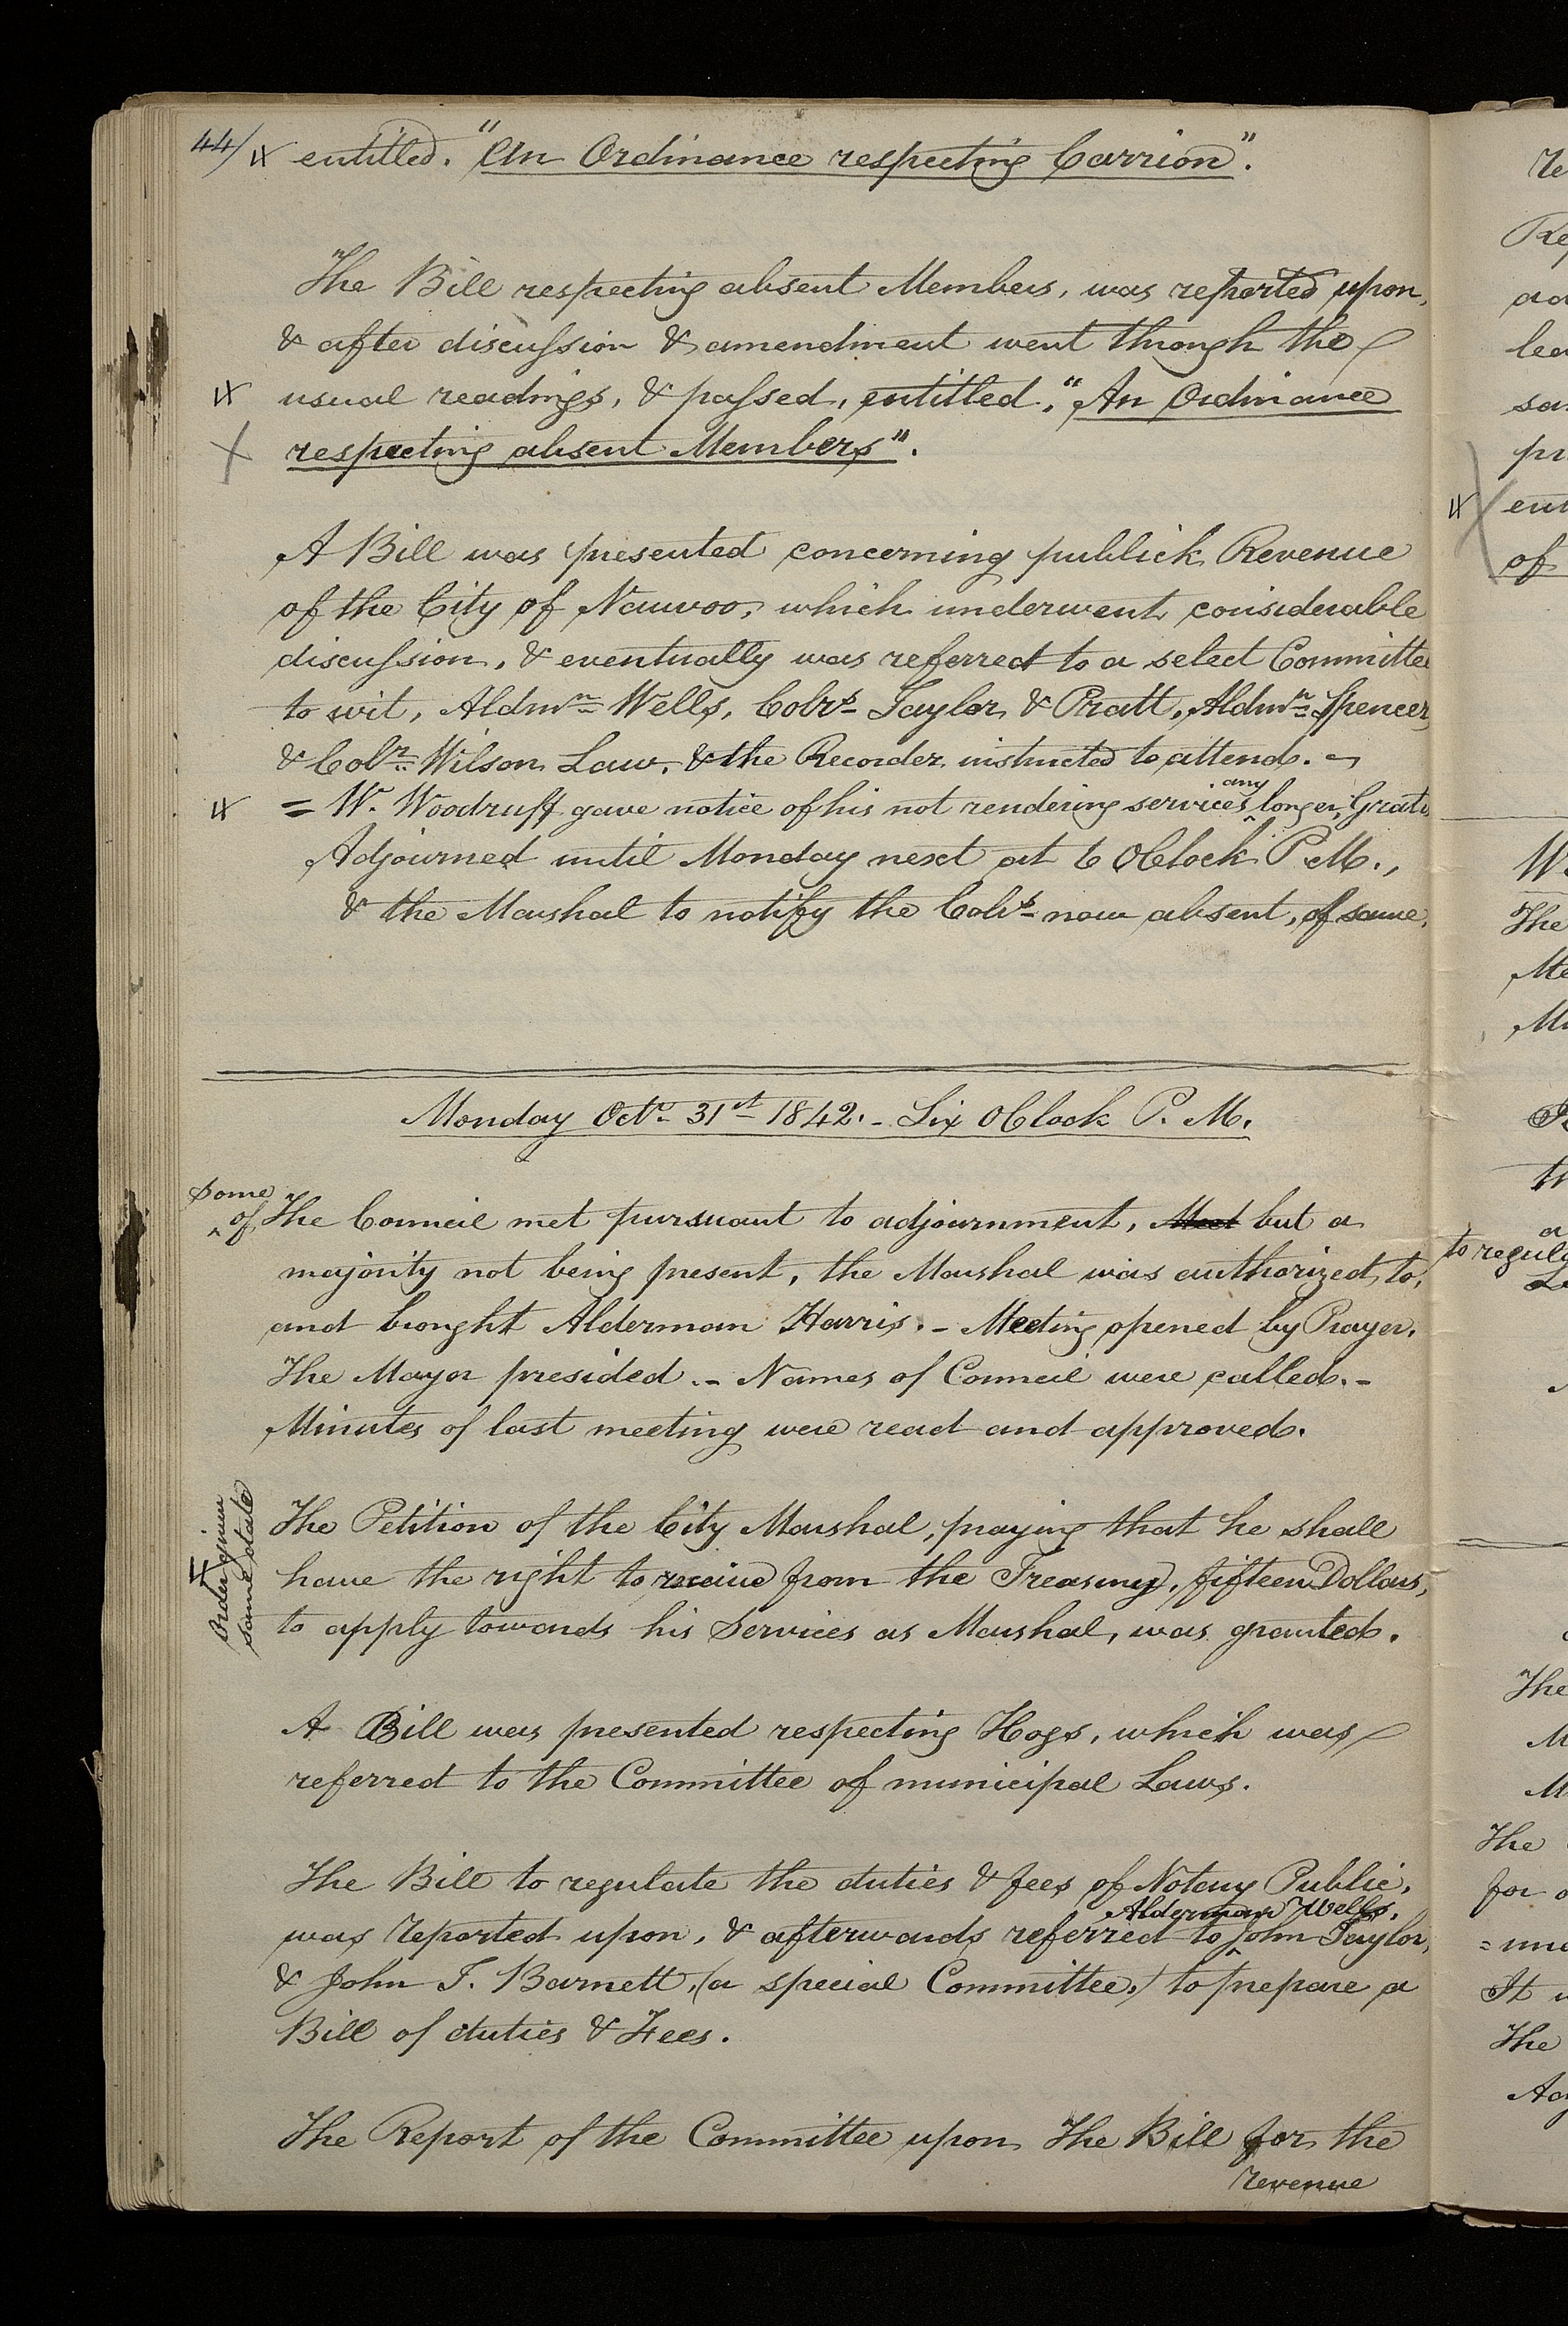 44/ entitled. "An Ordinance respecting Carrion".
The Bill respecting absent Members, was reported upon,
& after discussion & amendment went through the
usual readings, & passed, entitled, "An Ordinance
respecting absent Members".
A Bill was presented concerning publick Revenue
of the City of Nauvoo, which underwent considerable
discussion, & eventually was referred to a select Committee
to wit, Aldmn Wells, Colrs Taylor & Pratt, Aldmn Spencer,
& Colr Wilson Law, & the Recorder instructed to attend. -
= W. Woodruff gave notice of his not rendering services any longer, Gratis
Adjourned until Monday next at 6 OClock P.M.,
& the Marshal to notify the Colrs now absent, of same.
Monday Octr 31st 1842. - Six OClock P. M.
Some of The Council met pursuant to adjournment, Meet but a
majority not being present, the Marshal was authorized to,
and brought Alderman Harris. - Meeting opened by Prayer.
The Mayor presided. - Names of Council were called. -
Minutes of last meeting were read and approved.
Order given
same date
The Petition of the City Marshal, praying that he shall
have the right to receive from the Treasury, fifteen Dollars,
to apply towards his Services as Marshal, was granted.
A Bill was presented respecting Hogs, which was
referred to the Committee of municipal Laws.
The Bill to regulate the duties & fees of Notary Public,
was reported upon, & afterwards referred to Alderman Wells, John Taylor,
& John T. Barnett, (a special Committee,) to prepare a
Bill of duties & Fees.
The Report of the Committee upon The Bill for the
revenue
to regula
The
The
The
It
The